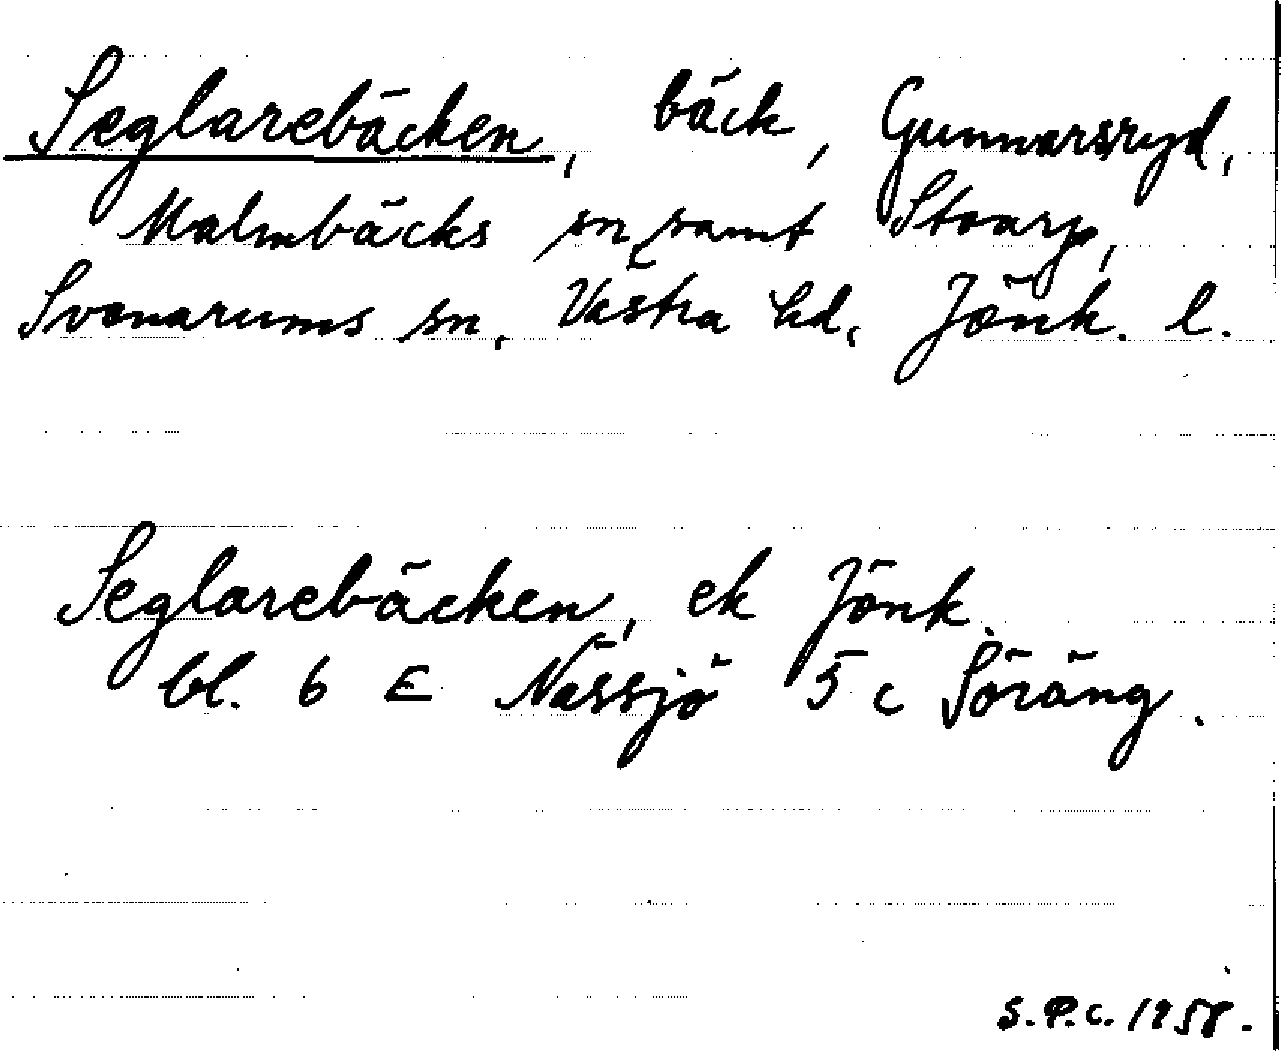 Seglarebäcken, bäck, Gunnarsryd,
Malmbäcks sn, samt Stoarp,
Svenarums sn, Västra hd, Jönk. l.
Seglarebäcken, ek Jönk.
bl. 6 E Nässjö 5 c Söräng.
S.P.C. 1958.